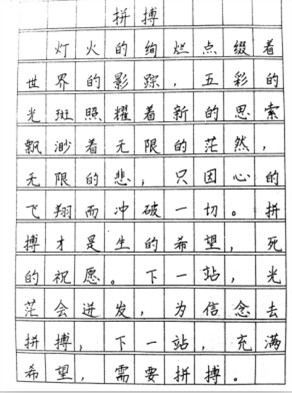 拼搏
灯火的绚烂点缀着
世界的影踪，五彩的
光斑照耀着新的思索
飘渺着无限的茫然，
无限的悲，只因心的
飞翔而冲破一切。拼
搏才是生的希望，死
的祝愿。下一站，光
茫会迸发，为信念去
拼搏，下一站，充满
希望，需要拼搏。